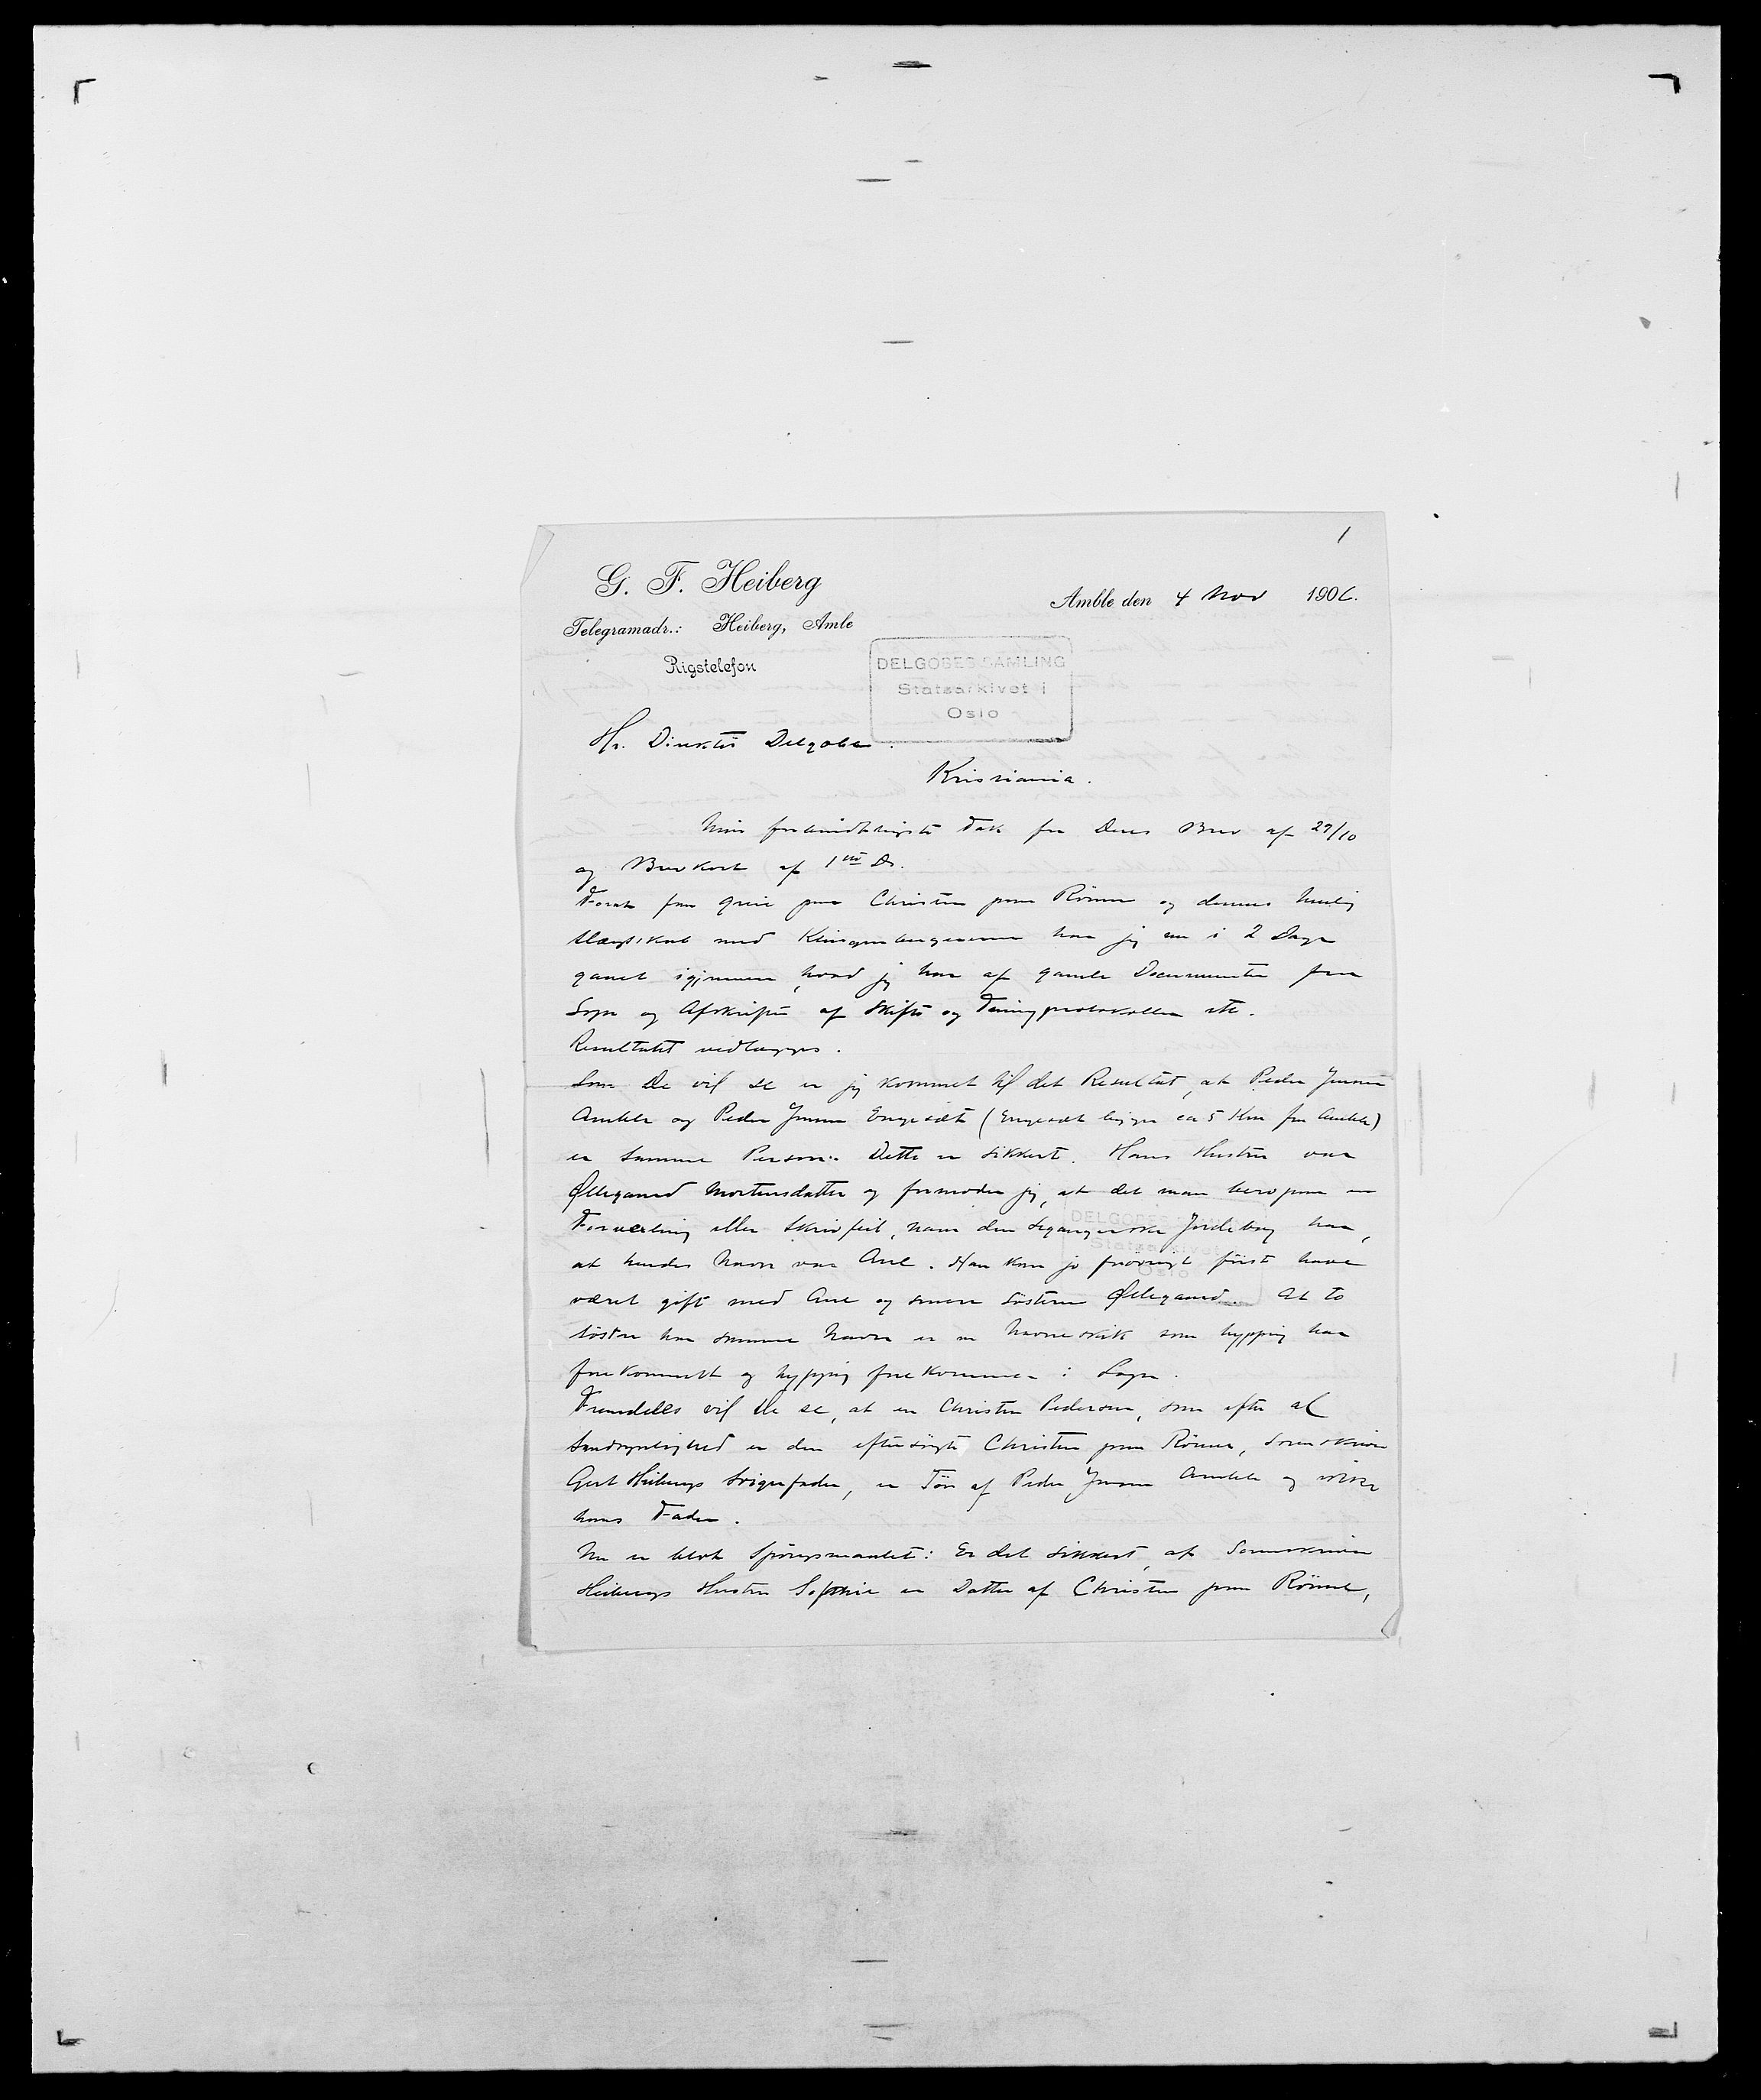 1
G. F. Heiberg
Amble den 4 Nov 1906.
Telegramadr.: Heiberg, Amle
Rigstelefon
DELGOBES SAMLING
Statsarkivet i
Oslo
Hr. Direktör Delgobe.
Kristiania.
Min forbindtligste Tak for Deres Brev af 29/10
og Brevkort af 1ste Ds.
Forat faa greie paa Christen paa Rönne og dennes
Slægtskab med har jeg nu i 2 Dage
gaaet igjennem, hvad jeg har af gamle Documenter fra
Sogn og Afskrifter af Skifte og Tingprotokoller etc.
Resultatet vedlægges.
Som De vil se er jeg kommet til det Resultat, at Peder Jensen
Amble og Peder Jensen Engesæt (Engesæt ligger ca 5 Km fra Amble)
er samme Person. Dette er sikkert. Hans Hustru var
Øllegaard Mortensdatter og formoder jeg, at det maa bero paa en
Forvexling eller Skrivfeil, naar den Jordebog har,
at hendes Navn var Ane. Han kan jo forövrigt först have
været gift med Ane og senere Sösteren Øllegaard. At to
Söstre har samme Navn er en Navneskik som hyppig har
forekommet og hyppig forekommer i Sogn.
Fremdeles vil De se, at en Christen Pedersen, som efter al
Sandsynlighed er den eftersögte Christen paa Rönne, Sorenskriver
Gert Heibergs Svigerfader, er Sön af Peder Jensen Amble og ikke
hans Fader.
Nu er blot Spörgsmaalet: Er det sikkert, at Sorenskriver
Heibergs Hustru Sophie er Datter af Christen paa Rönne,
DELGOBES SAMLING
Statsarkivet i
Oslo